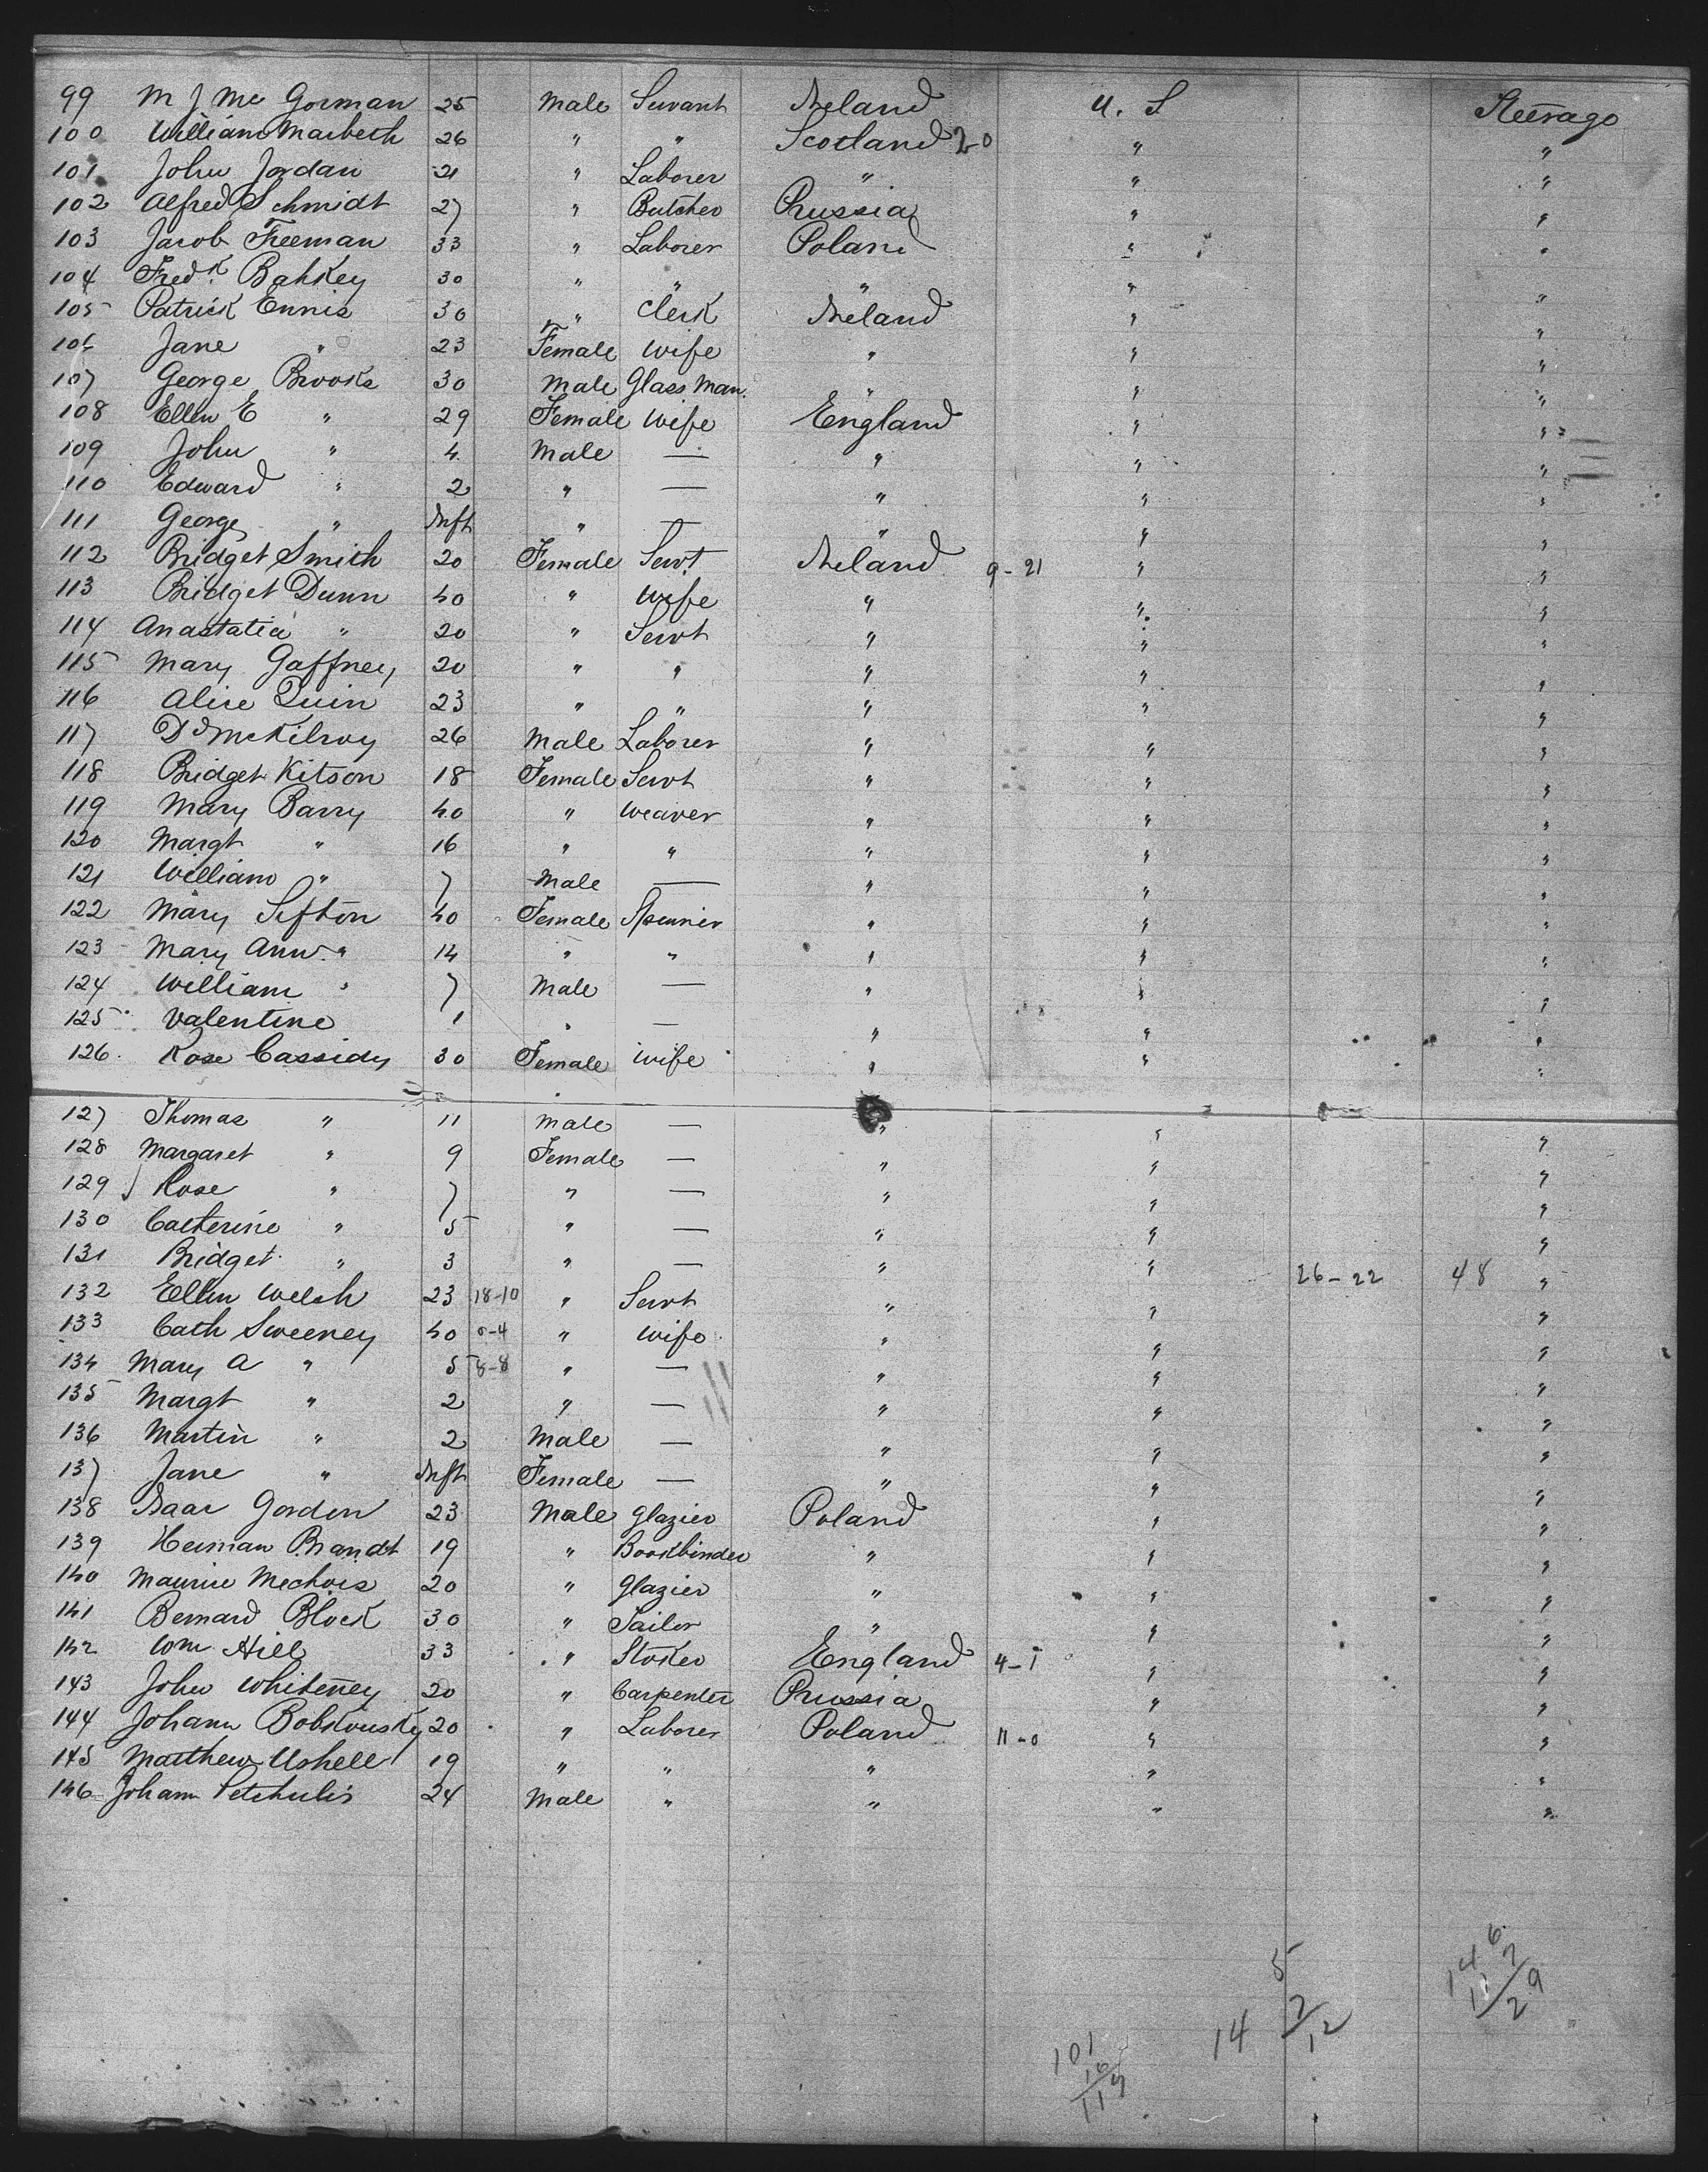 99 M J Mc Gorman 25 Male Servant Ireland U. S Steerage
100 William Macbeth 26 " " Scotland 20 " "
101 John Jordan 21 " Laborer " " "
102 Alfred Schmidt 27 " Butcher Prussia " "
103 Jacob Freeman 33 " Laborer Poland " "
104 Fredk. Bahkey 30 " " " " "
105 Patrick Ennis 30 " Clerk Ireland " "
106 Jane " 23 Female Wife " " "
107 George Brooks 30 Male Glass Man. " " "
108 Ellen E " 29 Female Wife England " "
109 John " 4 Male — " " "
110 Edward " 2 " — " " "
111 George " Inft " — " " "
112 Bridget Smith 20 Female Servt Ireland 9-21 " "
113 Bridget Dunn 40 " Wife " " "
114 Anastatia " 20 " Servt " " "
115 Mary Gaffney 20 " " " " "
116 Alice Quin 23 " " " " "
117 Dd McKilroy 26 Male Laborer " " "
118 Bridget Kitson 18 Female Servt " " "
119 Mary Barry 40 " Weaver " " "
120 Margt " 16 " " " " "
121 William " 7 Male — " " "
122 Mary Sefton 40 Female Spinner " " "
123 Mary Ann " 14 " " " " "
124 William " 7 Male — " " "
125 Valentine 1 " — " " "
126 Rose Cassidy 30 Female Wife " " "
127 Thomas " 11 Male — " " "
128 Margaret " 9 Female — " " "
129 Rose " 7 " — " " "
130 Catherine " 5 " — " " "
131 Bridget " 3 " — " " 26-22 48 "
132 Ellen Welsh 23 18-10 " Servt " " "
133 Cath Sweeney 40 0-4 " Wife " " "
134 Mary A " 5 8-8 " — " " "
135 Margt " 2 " — " " "
136 Martin " 2 Male — " " "
137 Jane " Inft Female — " " "
138 Isaac Gordon 23 Male Glazier Poland " "
139 Herman Brandt 19 " Bookbinder " " "
140 Maurice Mechois 20 " Glazier " " "
141 Bernard Block 30 " Tailor " " "
142 Wm Hill 33 " Stoker England 4-1 " "
143 John Whiteney 20 " Carpenter Prussia " "
144 Johann Bobkousky 20 " Laborer Poland 11-0 " "
145 Matthew Ushell 19 " " " " "
146 Johann Petchulis 24 Male " " " "
5
14 2
12
146
117
29
101
16
117